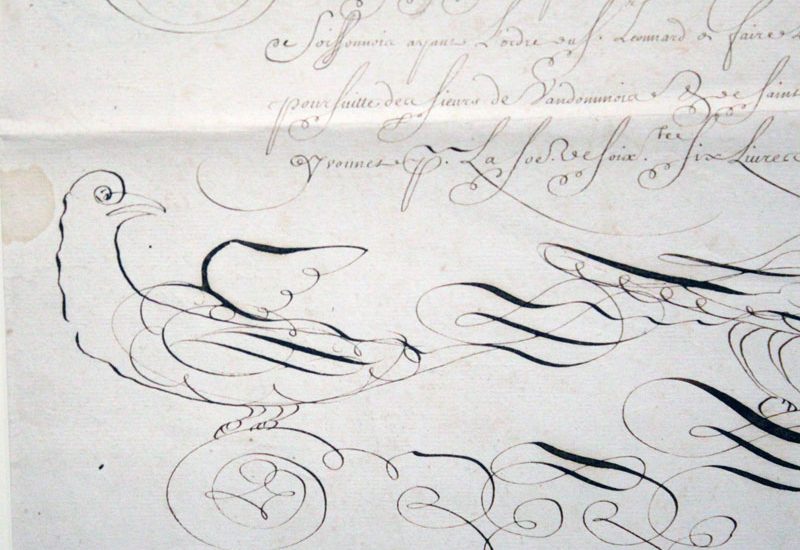 de Soissonnois ayant L'ordre du S. Leonnard de faire
poursuitte des sieurs de Vandommois & de Saint
Yvonnet p. La soe. de soix. tee six Livres